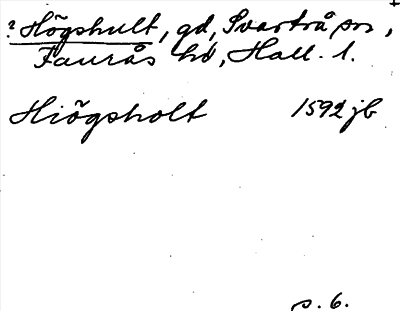 ? Högshult, gd, Svartrå sn,
Faurås hd, Hall. l.
Hiögsholt 1592 jb
s. 6.